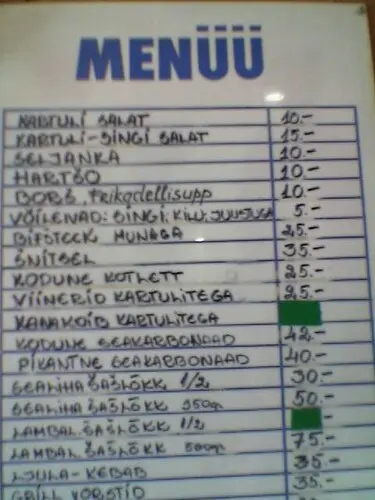 MENÜÜ
KARTULI SALAT 10.-
KARTULI-SINGI SALAT 15.-
SELJANKA 10.-
HARTŠO 10.-
BORŠ, Frikadellisupp 10.-
VÕILEIVAD: SINGI, KILU, JUUSTUGA 5.-
BIFSTEEK MUNAGA 25.-
ŠNITSEL 35.-
KODUNE KOTLETT 25.-
VIINERID KARTULITEGA 25.-
KANAKOIB KARTULITEGA
KODUNE SEAKARBONAAD 42.-
PIKANTNE SEAKARBONAAD 40.-
SEALIHA ŠAŠLÕKK 1/2 30.-
SEALIHA ŠAŠLÕKK 50.-
LAMBAL. ŠAŠLÕKK 1/2 -
LAMBAL ŠAŠLÕKK 75.-
LJULA-KEBAB 35.-
GRILL VORSTID 35.-